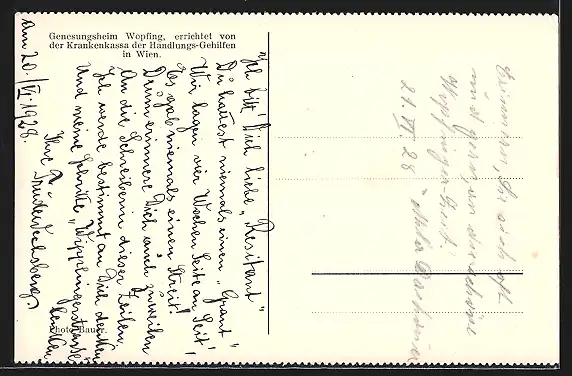 Genesungsheim Wopfing, errichtet von
der Krankenkassa der Handlungs-Gehilfen
in Wien.
Am 20./VI. 1928.
"Ich bitt' Dich liebe "Resitant"
Du hattest niemals einen "Grant"
Wir lagen vier Wochen Seite an Seit'!
Es gab niemals einen Streit!
Drum erinnere Dich auch zuweilen
An die Schreiberin dieser Zeilen.
Ich werde bestimmt an Dich denken
Und meine Schritte, "Wipplingerstrasse"
lenken
Ihre
Photo Bauer.
Erinnern, Sie sich oft
und gerne an die schöne
Wopfinger-Zeit!
21. VI 28